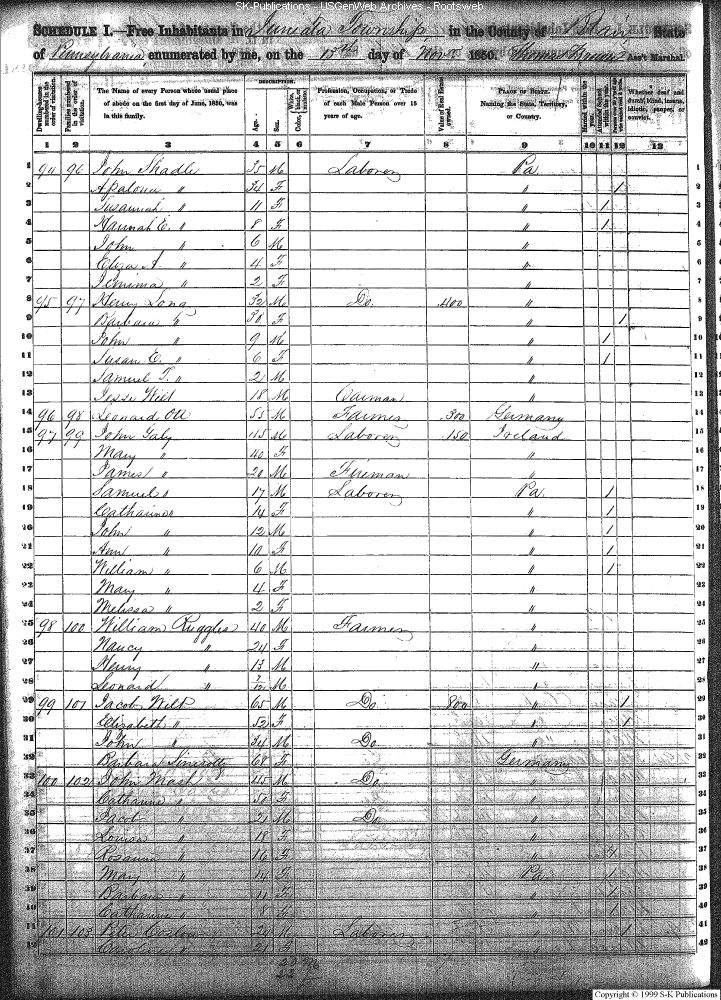 SK-Publications - USGenWeb Archives - Rootsweb
SCHEDULE I.—Free Inhabitants in Juniata Township in the County of Blair State
of Pennsylvania enumerated by me, on the 15th day of Nov 1850. Thomas Ass't Marshal.
Dwelling-houses numbered in the order of visitation. Families numbered in the order of visitation. The Name of every Person whose usual place of abode on the first day of June, 1850, was in this family. DESCRIPTION. Age. Sex. Color, White, black or mulatto. Profession, Occupation, or Trade of each Male Person over 15 years of age. Value of Real Estate owned. PLACE OF BIRTH. Naming the State, Territory, or Country. Married within the year. Attended School within the year. Whether deaf and dumb, blind, insane, idiotic, pauper, or convict.
1 2 3 4 5 6 7 8 9 10 11 12 13
1 94 96 John Shadle 35 M Laborer Pa 1
2 Apalona " 34 F " 1 2
3 Susannah " 11 F " 1 3
4 Hannah E. " 8 F " 1 4
5 John " 6 M " 5
6 Eliza A. " 4 F " 6
7 Jemima " 2 F " 7
8 95 97 Henry Long 32 M Do. 400 " 8
9 Barbara " 30 F " 1 9
10 John " 9 M " 1 10
11 Susan E. " 6 F " 1 11
12 Samuel T. " 2 M " 12
13 Jesse Wilt 18 M " 13
14 96 98 Leonard Ott 55 M Farmer 300 Germany 14
15 97 99 John Galy 45 M Laborer 150 Ireland 15
16 Mary " 40 F " 16
17 James " 20 M Fireman " 17
18 Samuel " 17 M Laborer Pa 1 18
19 Catharine " 14 F " 1 19
20 John " 12 M " 1 20
21 Ann " 10 F " 1 21
22 William " 6 M " 1 22
23 Mary " 4 F " 23
24 Melissa " 2 F " 24
25 98 100 William Ruggles 40 M Farmer " 25
26 Nancy " 24 F " 26
27 Henry " 13 M " 27
28 Leonard " 7/12 M " 28
29 99 101 Jacob Wilt 65 M Do 800 " 1 29
30 Elizabeth " 52 F " 1 30
31 John " 34 M Do " 31
32 Barbara 68 F Germany 32
33 100 102 John 45 M Do " 33
34 Catharine " 50 F " 34
35 Jacob " 21 M Do " 35
36 Louisa " 18 F " 36
37 Rosanna " 16 F " 1 37
38 Mary " 14 F Pa 1 38
39 Barbara " 11 F " 1 39
40 Catharine " 8 F " 1 40
41 101 103 24 M Laborer " 1 41
42 Caroline " 21 F " 42
Copyright © 1999 S-K Publications